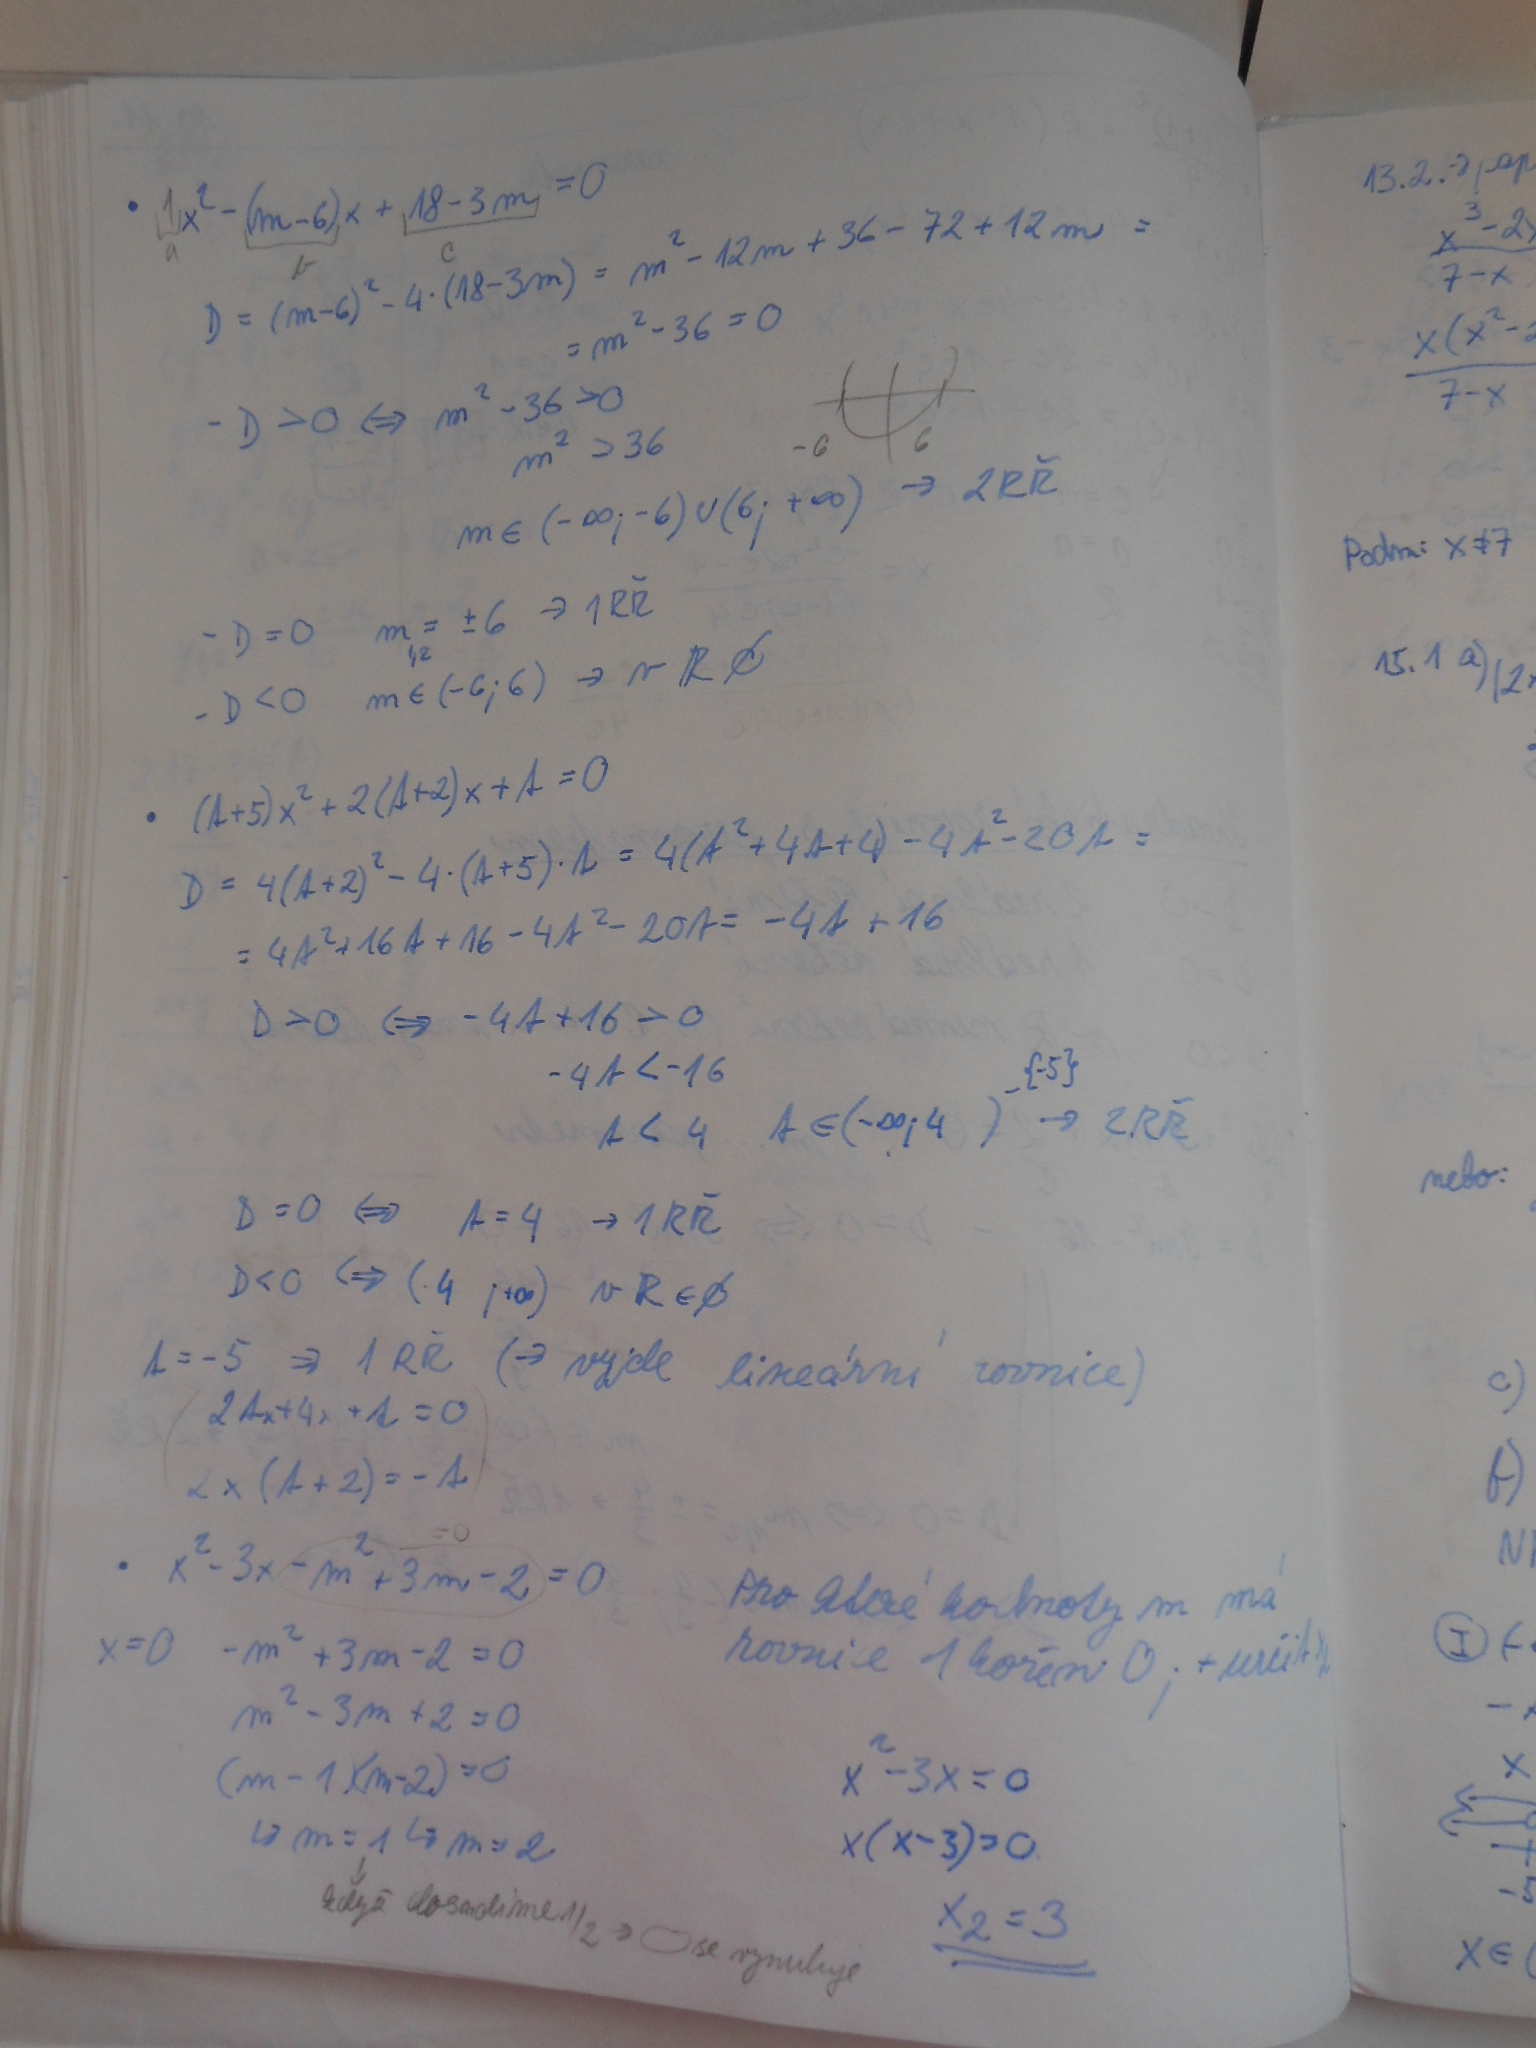 • 1x² - (m-6)x + 18-3m = 0
a b c
D = (m-6)² - 4·(18-3m) = m² - 12m + 36 - 72 + 12m =
= m² - 36 = 0
- D > 0 ⇔ m² - 36 > 0
m² > 36
-6 6
m ∈ (-∞; -6) ∪ (6; +∞) → 2RŘ
- D = 0 m₁,₂ = ±6 → 1RŘ
- D < 0 m ∈ (-6; 6) → v R ∅
• (A+5)x² + 2(A+2)x + A = 0
D = 4(A+2)² - 4·(A+5)·A = 4(A² + 4A + 4) - 4A² - 20A =
= 4A² + 16A + 16 - 4A² - 20A = -4A + 16
D > 0 ⇔ -4A + 16 > 0
-4A < -16
A < 4 A ∈ (-∞; 4) - {-5} → 2RŘ
D = 0 ⇔ A = 4 → 1RŘ
D < 0 ⇔ (4; +∞) v R ∈ ∅
A = -5 ⇒ 1RŘ (→ vyjde lineární rovnice)
2Ax + 4x + A = 0
2x(A+2) = -A
=0
• x² - 3x - m² + 3m - 2 = 0
Pro které hodnoty m má
rovnice 1 kořen 0; + určit
x = 0 -m² + 3m - 2 = 0
m² - 3m + 2 = 0
(m-1)(m-2) = 0
↳ m = 1 ↳ m = 2
když dosadíme 1/2 → se vynuluje
x² - 3x = 0
x(x-3) = 0
x₂ = 3
13.2. →
x³ - 2x
7-x
x(x² - 2
7-x
Podm: x ≠ 7
15.1 a) (2x
nebo:
c)
f)
I
- x
x
-5
x ∈ (